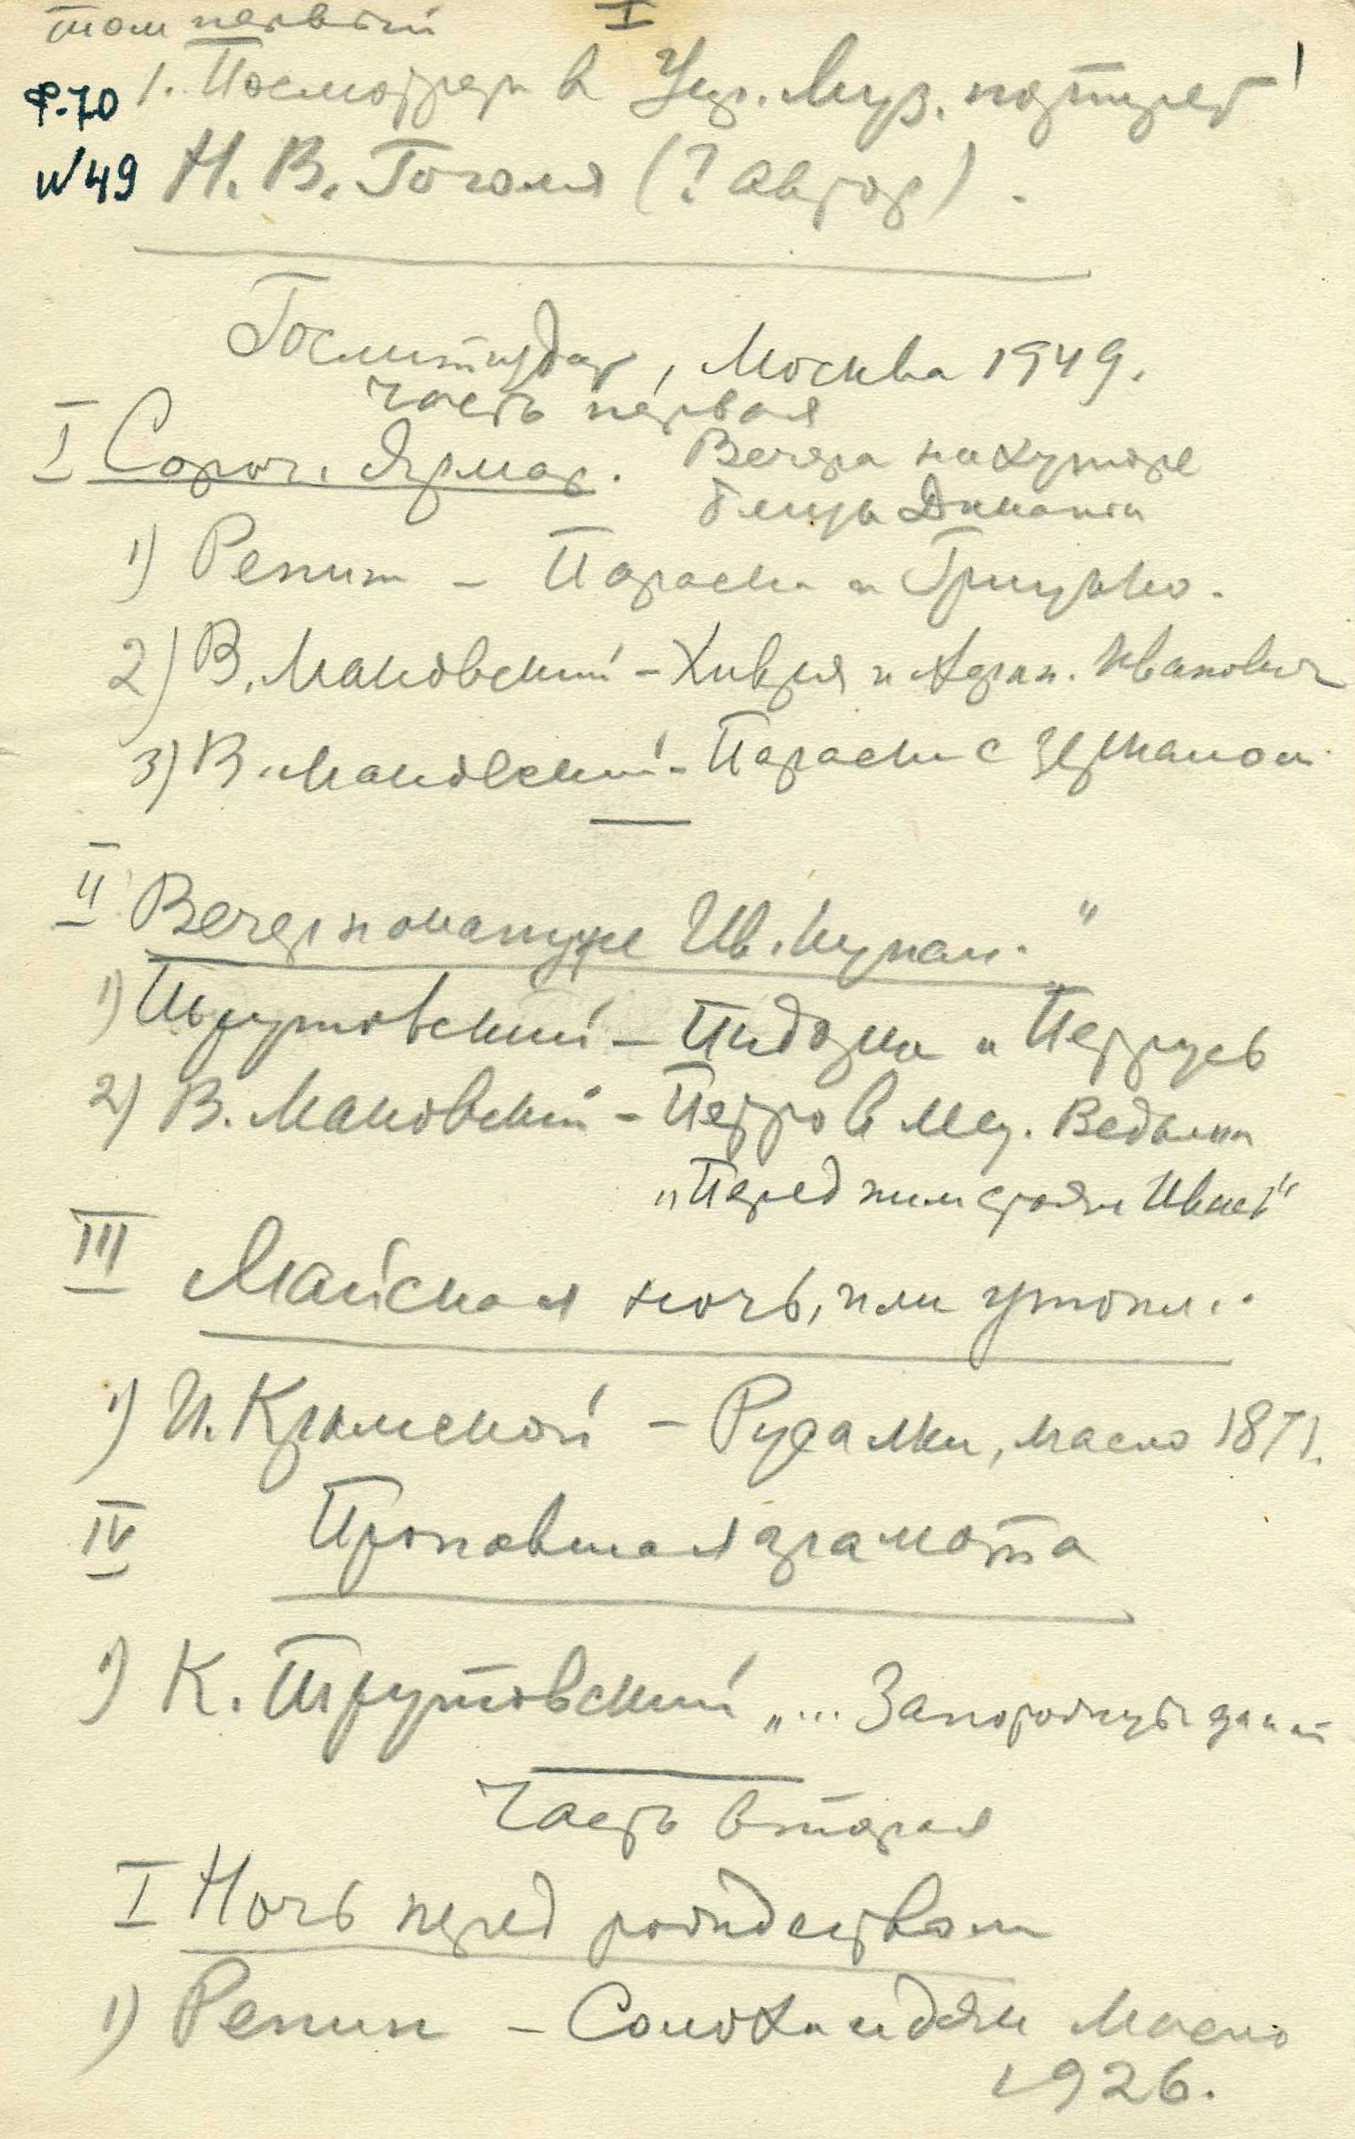 том первый I
Ф.70 1. Посмотреть в Муз. портрет 1
№49 Н. В. Гоголя (? автор).
Гослитиздат, Москва 1949.
Часть первая
I Сороч. Ярмар. Вечера на хуторе
близь Диканьки
1) Репин – Параска и Грицько.
2) В. Маковский – Хивря и Афан. Иванович
3) В. Маковский – Параска с зеркалом
II Вечер накануне Ив. Купал. "
1) Трутовский – Пидорка и Петрусь
2) В. Маковский – Петро в Ведьмы
„Перед ним стояла Ивась"
III Майская ночь, или утопл..
1) И. Крамской – Русалки, масло 1871.
IV Пропавшая грамота
1) К. Трутовский „... Запорожец
Часть вторая
I Ночь перед рождеством
1) Репин – Солоха и дьяк Масло
1926.